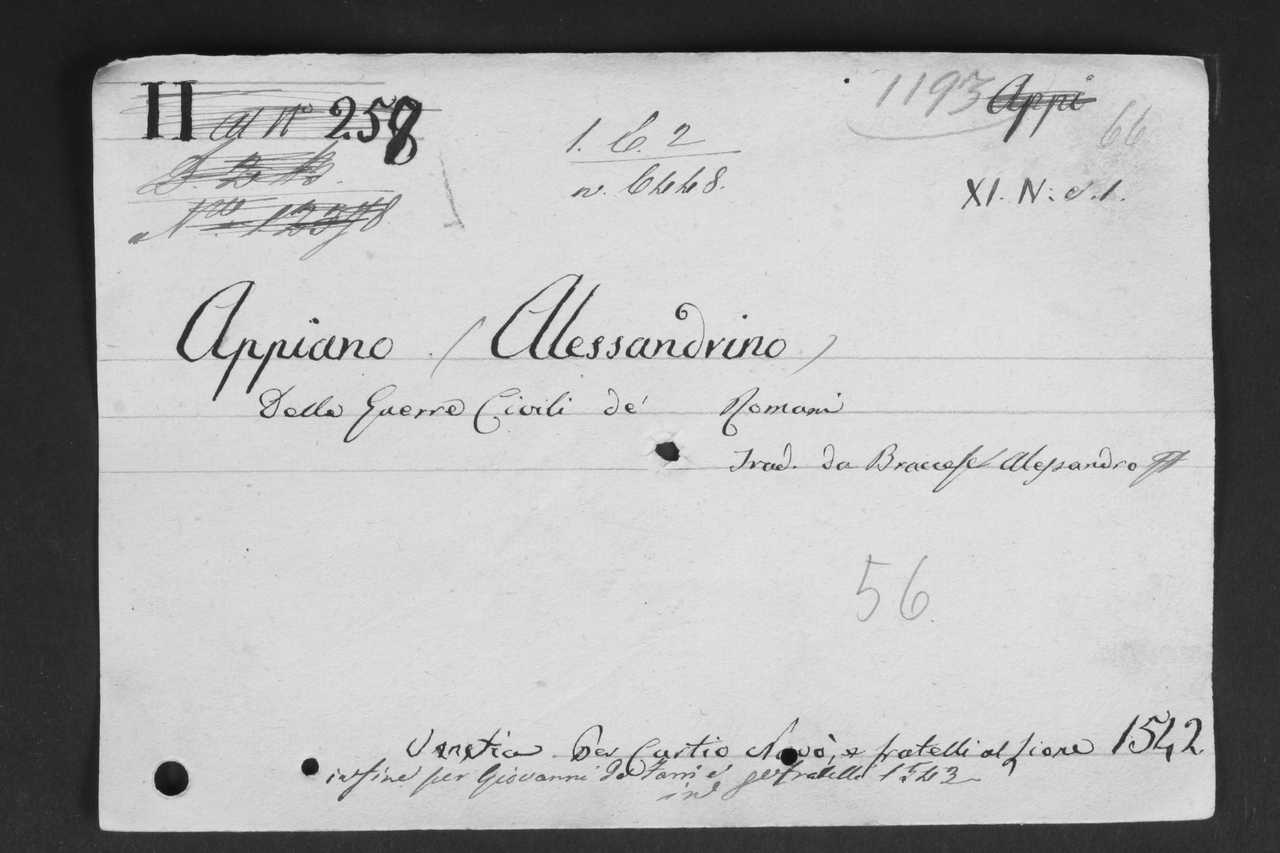 II 258
1193 Appi
66
1. C. 2
n. 6448.
XI. N: d. 1.
Appiano (Alessandrino)
Delle Guerre Civili de' Romani
Trad. da Braccese Alessandro
56
Venetia Per Curtio Navò, e fratelli al Lione 1542
infine per Giovanni de Farri e fratelli 1543
in 8°